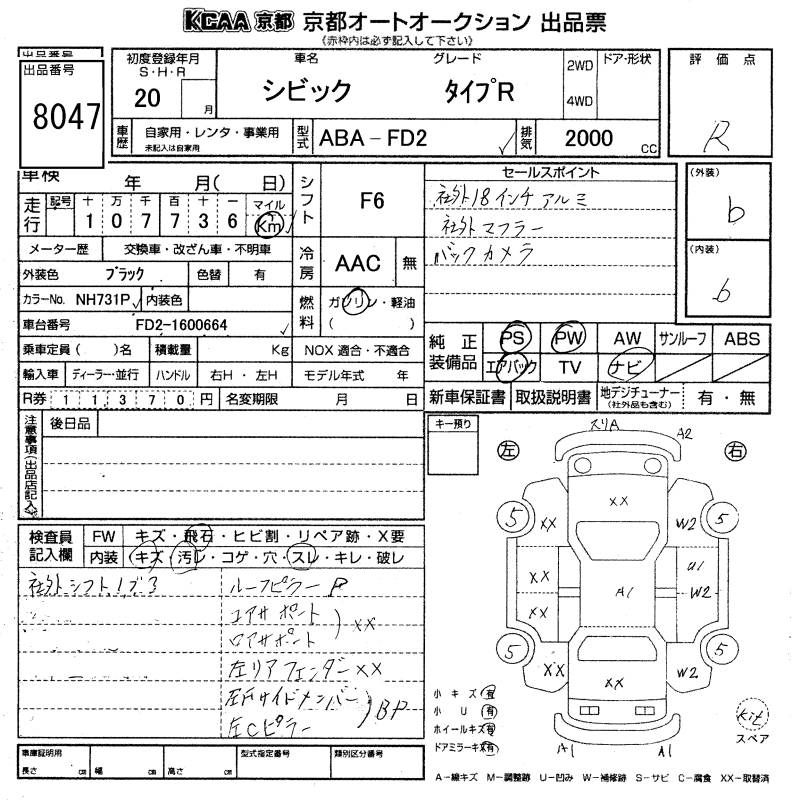 KCAA 京都 京都オートオークション 出品票
《赤枠内は必ず記入して下さい》
出品番号
8047
初度登録年月
S・H・R
20 月
車名 グレード
シビック タイプR
2WD
4WD
ドア・形状
評価点
R
車歴 自家用・レンタ・事業用
未記入は自家用
型式 ABA-FD2
排気 2000 CC
車検 年 月( 日)
走行 記号 十 万 千 百 十 一 マイル
1 0 7 7 3 6 Km
シフト F6
セールスポイント
社外18インチアルミ
社外マフラー
バックカメラ
(外装)
b
(内装)
b
メーター歴 交換車・改ざん車・不明車
冷房 AAC 無
外装色 ブラック 色替 有
カラーNo. NH731P 内装色
燃料 ガソリン・軽油
( )
車台番号 FD2-1600664
乗車定員( )名 積載量 Kg NOX適合・不適合
輸入車 ディーラー・並行 ハンドル 右H・左H モデル年式 年
R券 1 1 3 7 0 円 名変期限 月 日
純正装備品 PS PW AW サンルーフ ABS
エアバック TV ナビ
新車保証書 取扱説明書 地デジチューナー
(社外品も含む) 有・無
注意事項(出品店記入) 後日品
キー預り
左 右
スリA A2
XX
5 5
XX W2
XX A1 U1
XX W2
5 5
XX XX W2
A1 A1
検査員記入欄 FW キズ・飛石・ヒビ割・リペア跡・X要
内装 キズ・汚レ・コゲ・穴・スレ・キレ・破レ
社外シフトノブ3 ルーフピラー P
コアサポート
ロアサポート ) XX
左リアフェンダー XX
左Fサイドメンバー
左Cピラー ) BP
小キズ 有
小U 有
ホイールキズ 有
ドアミラーキズ 有
Kit
スペア
車庫証明用
長さ cm 幅 cm 高さ cm
型式指定番号 類別区分番号
A-線キズ M-調整跡 U-凹み W-補修跡 S-サビ C-腐食 XX-取替済